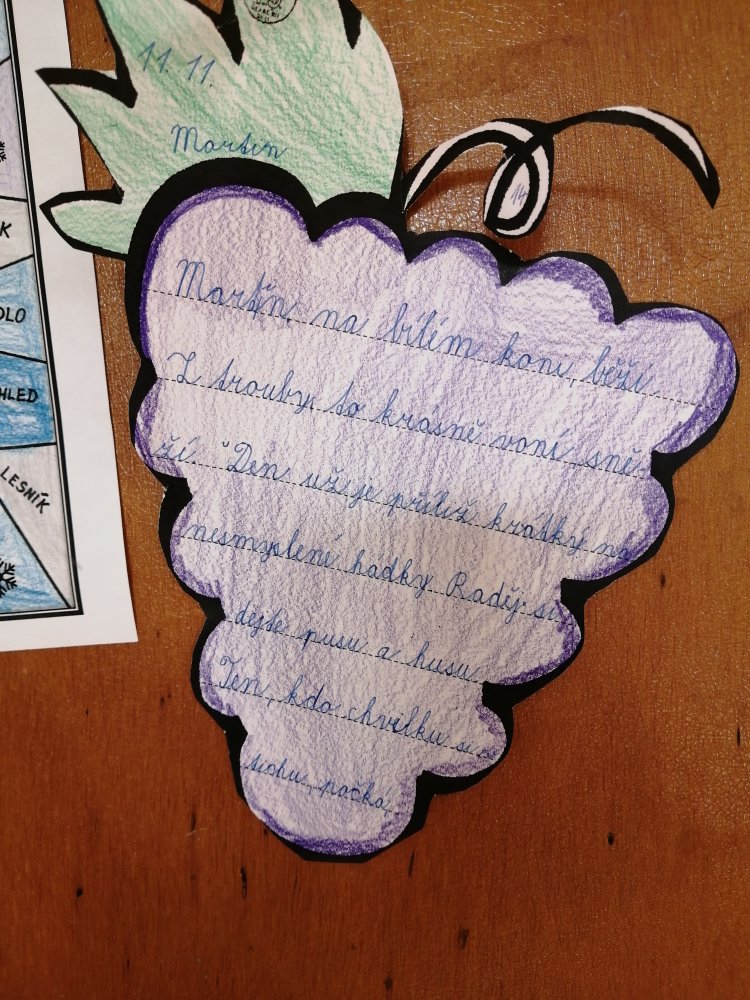 11. 11.
Martin
14
Martin na bílém koni, běží
Z trouby to krásně voní sně-
ží. "Den užijé příliž krátký na
nesmyslené hádky Raděj si
dejte pusu a husu
Ten, kdo chvilku si
tichu, počká
K
DLO
HLED
LESNÍK